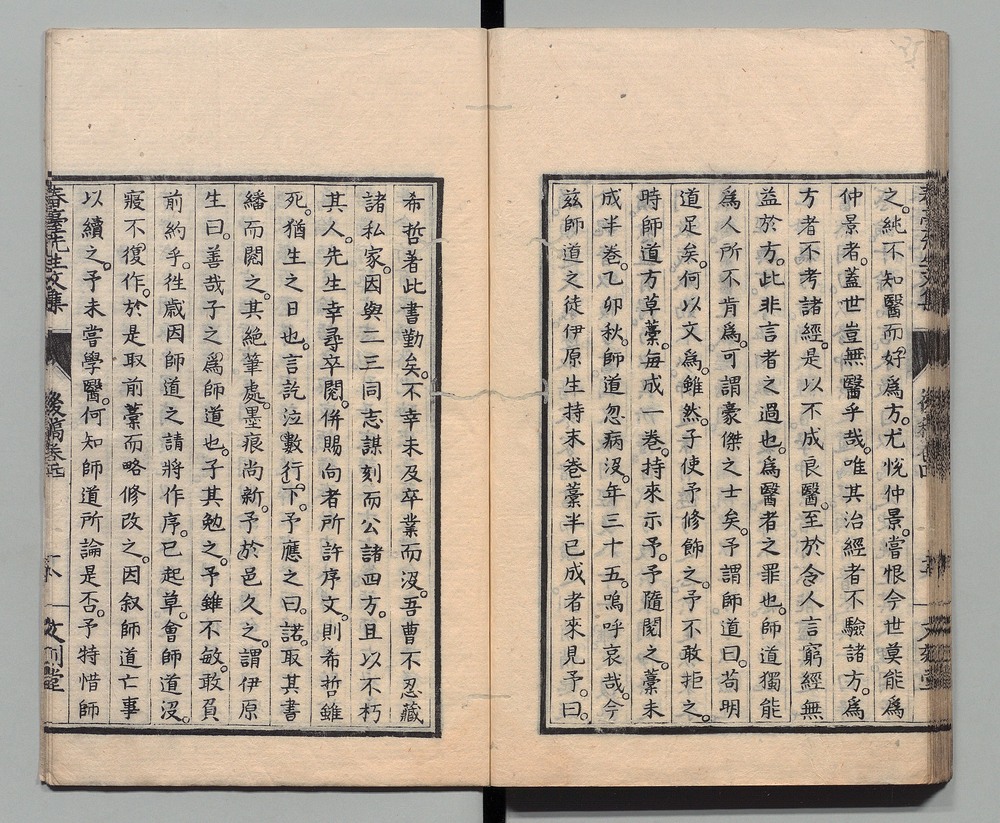 之。純不知醫而好爲方。尤悦仲景。嘗恨今世莫能爲
仲景者。蓋世豈無醫乎哉。唯其治經者不驗諸方。爲
方者不考諸經。是以不成良醫。至於令人言窮經無
益於方。此非言者之過也。爲醫者之罪也。師道獨能
爲人所不肯爲。可謂豪傑之士矣。予謂師道曰。苟明
道足矣。何以文爲。雖然。子使予修飾之。予不敢拒之。
時師道方草藁。每成一卷。持來示予。予隨閲之。藁未
成半卷。乙卯秋。師道忽病沒。年三十五。嗚呼哀哉。今
茲師道之徒伊原生持末卷藁半已成者來見予。曰。
希哲著此書勤矣。不幸未及卒業而沒。吾曹不忍藏
諸私家。因與二三同志謀刻而公諸四方。且以不朽
其人。先生幸尋卒閲。併賜向者所許序文。則希哲雖
死。猶生之日也。言訖泣數行下。予應之曰。諾。取其書
繙而閲之。其絶筆處。墨痕尚新。予於邑久之。謂伊原
生曰。善哉子之爲師道也。子其勉之。予雖不敏。敢負
前約乎。徃歳因師道之請將作序。已起草。會師道沒。
寢不復作。於是取前藁而略修改之。因叙師道亡事
以續之。予未嘗學醫。何知師道所論是否。予特惜師
春臺先生文集 後稿卷之四 嵩山 文刻堂